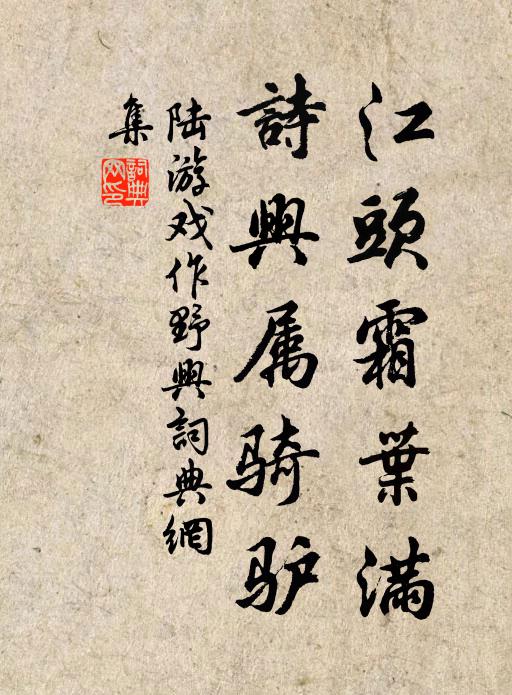 江頭霜葉滿
詩興属骑驴
陆游戏作野興詞典網
集
詞典
网印